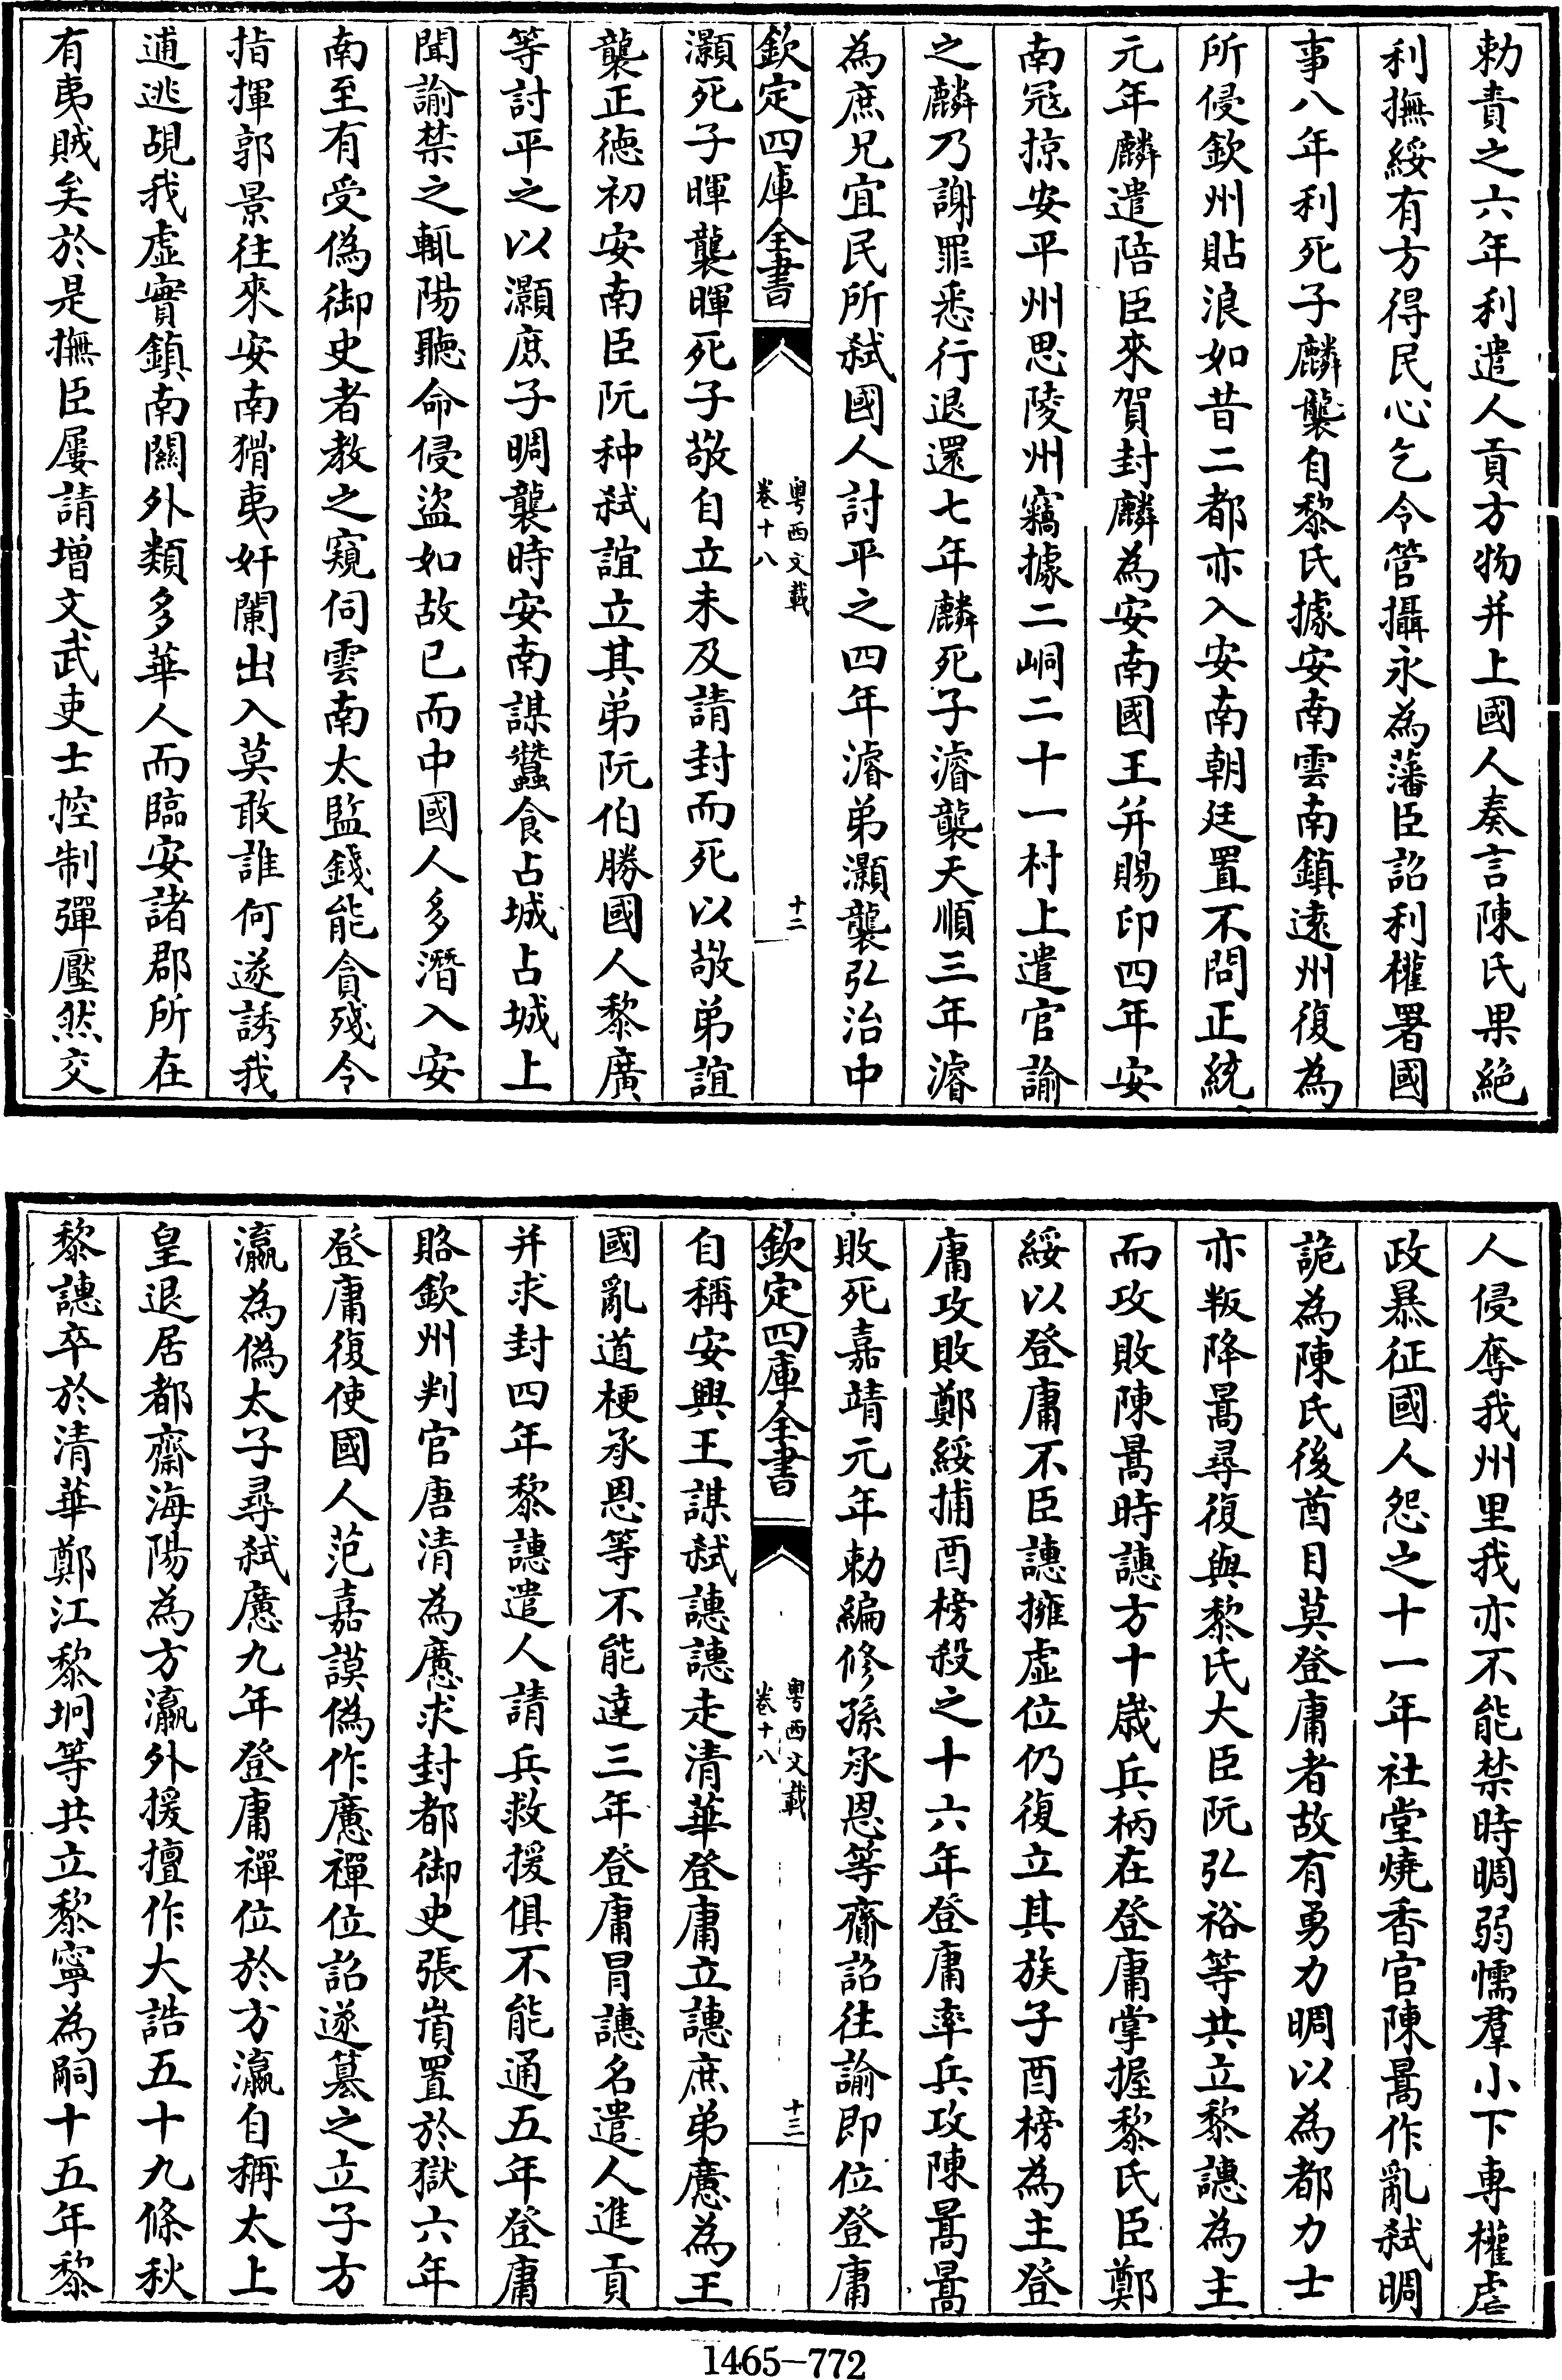 勅責之六年利遣人貢方物并上國人奏言陳氏果絕
利撫綏有方得民心乞令管攝永為藩臣詔利權署國
事八年利死子麟襲自黎氏據安南雲南鎮逺州復為
所侵欽州貼浪如昔二都亦入安南朝廷置不問正統
元年麟遣陪臣來賀封麟為安南國王并賜印四年安
南冦掠安平州思陵州竊據二峒二十一村上遣官諭
之麟乃謝罪悉行退還七年麟死子濬襲天順三年濬
為庶兄宜民所弑國人討平之四年濬弟灝襲弘治中
欽定四庫全書
粤西文載
卷十八
十二
灝死子暉襲暉死子敬自立未及請封而死以敬弟誼
襲正徳初安南臣阮种弑誼立其弟阮伯勝國人黎廣
等討平之以灝庶子晭襲時安南謀蠶食占城占城上
聞諭禁之輒陽聽命侵盜如故已而中國人多潛入安
南至有受偽御史者教之窺伺雲南太監錢能貪殘令
指揮郭景往來安南猾夷奸闌出入莫敢誰何遂誘我
逋逃覘我虛實鎮南關外類多華人而臨安諸郡所在
有夷賊矣於是撫臣屢請增文武吏士控制彈壓然交
人侵奪我州里我亦不能禁時晭弱懦羣小下專權虐
政暴征國人怨之十一年社堂燒香官陳暠作亂弑晭
詭為陳氏後酋目莫登庸者故有勇力晭以為都力士
亦叛降暠尋復與黎氏大臣阮弘裕等共立黎譓為主
而攻敗陳暠時譓方十歲兵柄在登庸掌握黎氏臣鄭
綏以登庸不臣譓擁虛位仍復立其族子酉榜為主登
庸攻敗鄭綏捕酉榜殺之十六年登庸率兵攻陳暠暠
敗死嘉靖元年勅編修孫承恩等齎詔往諭即位登庸
欽定四庫全書
粤西文載
卷十八
十三
自稱安興王謀弑譓譓走清華登庸立譓庶弟懬為王
國亂道梗承恩等不能達三年登庸冐譓名遣人進貢
并求封四年黎譓遣人請兵救援俱不能通五年登庸
賂欽州判官唐清為懬求封都御史張嵿置於獄六年
登庸復使國人范嘉謨偽作懬禪位詔遂簒之立子方
瀛為偽太子尋弑懬九年登庸禪位於方瀛自稱太上
皇退居都齋海陽為方瀛外援擅作大誥五十九條秋
黎譓卒於清華鄭江黎坰等共立黎寧為嗣十五年黎
1465-772